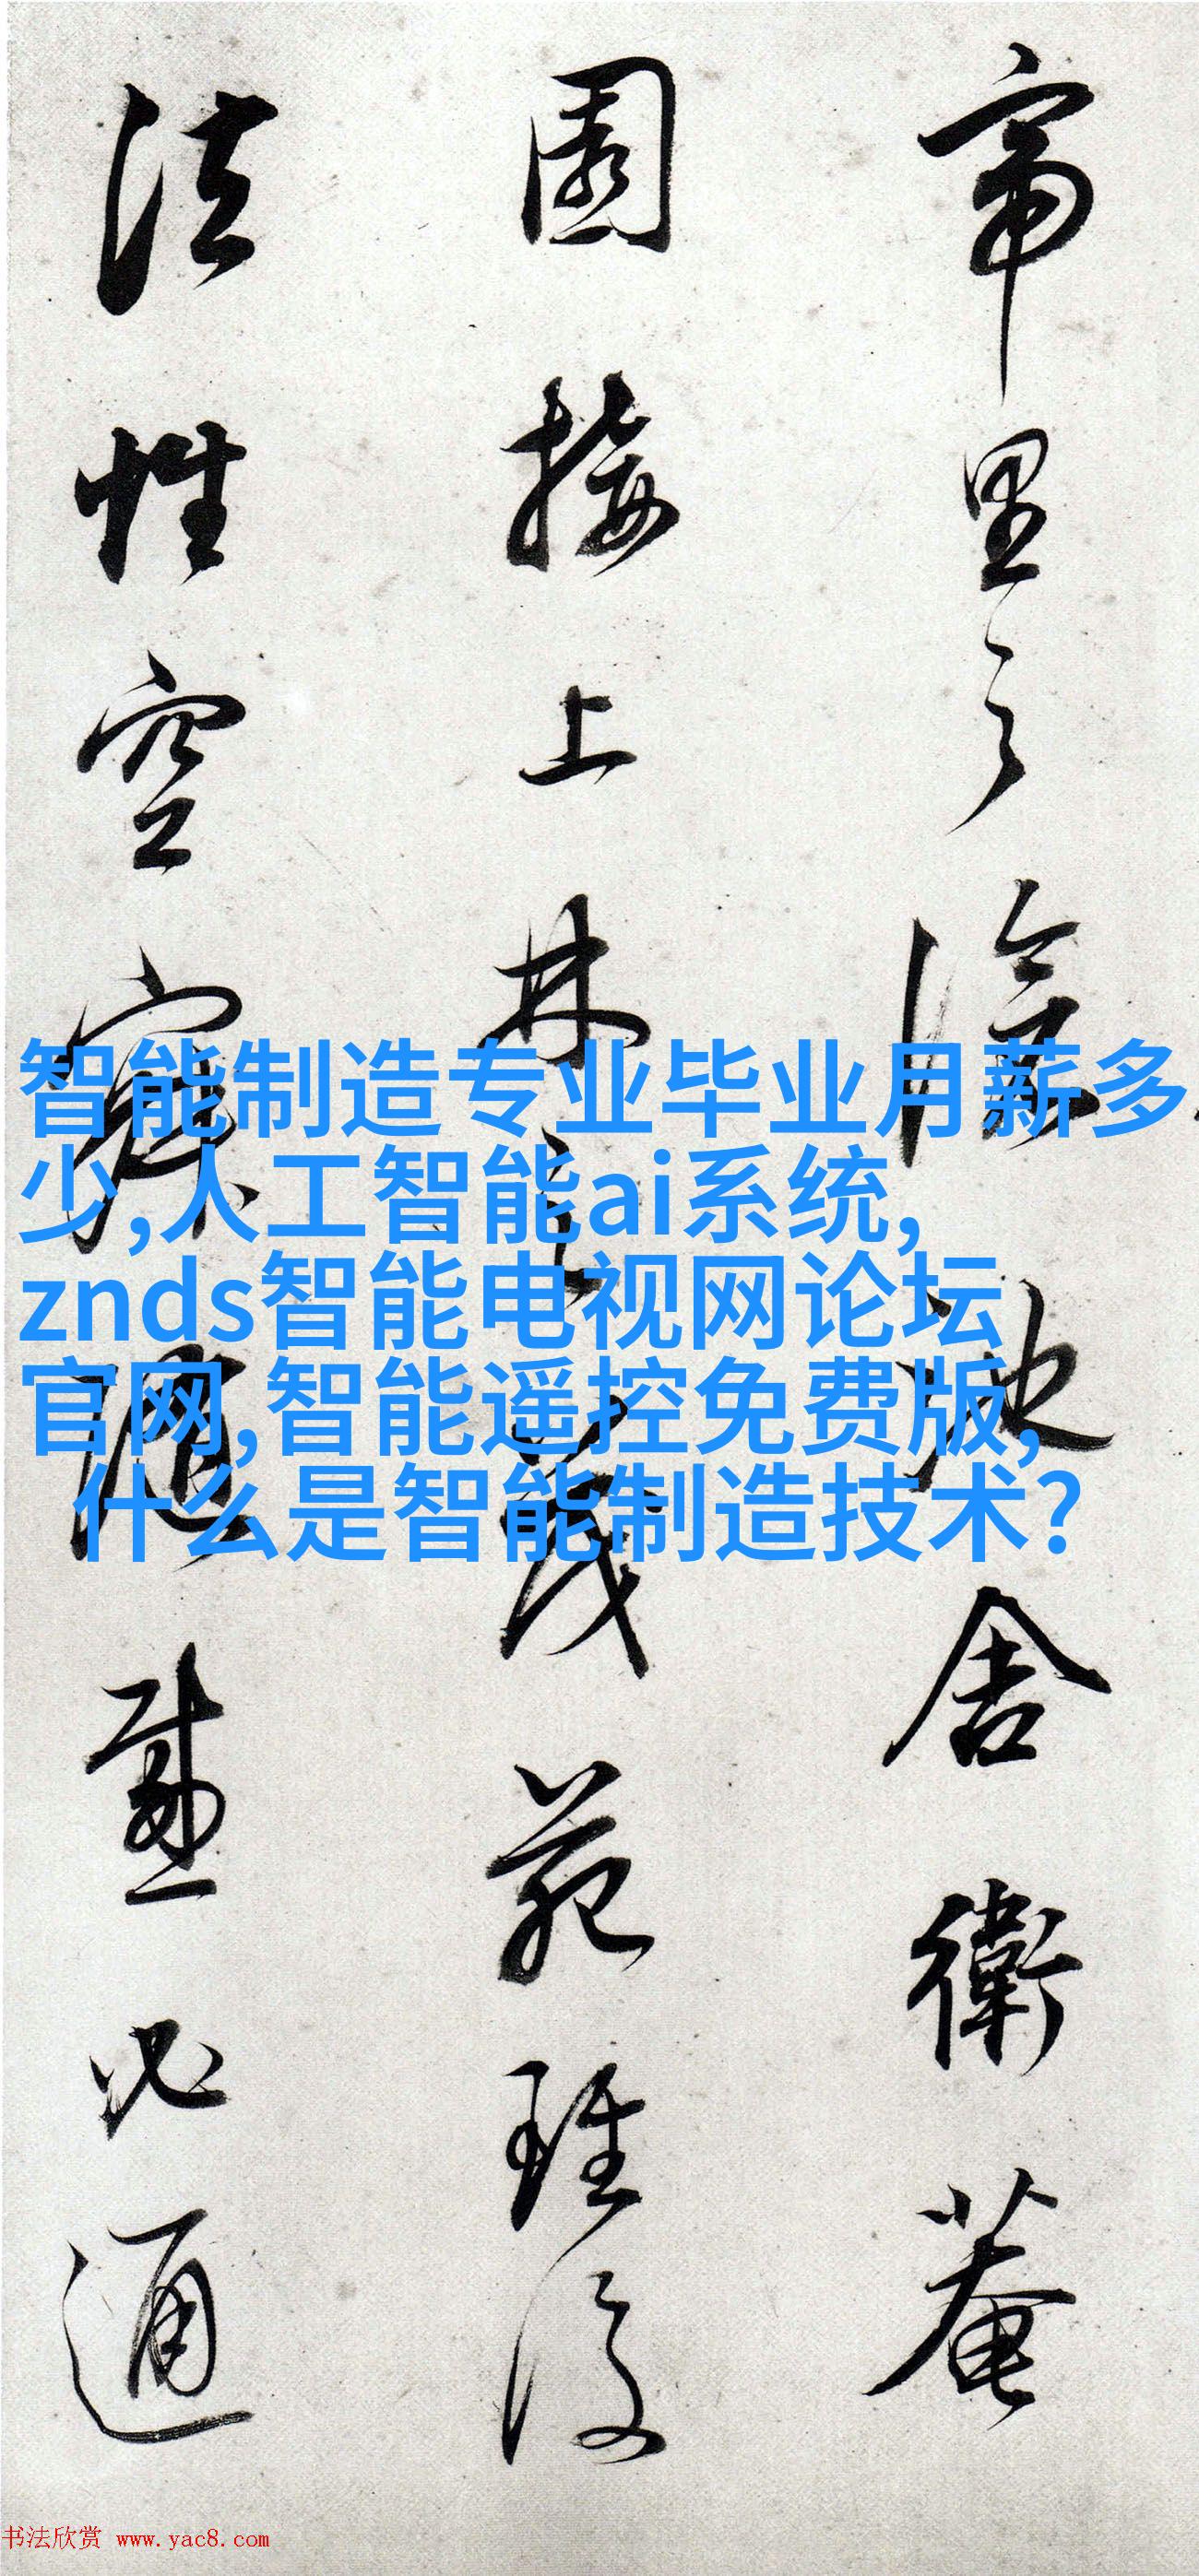 帝里之陰地舍衛菴
園接上林之茂苑雖復
法性空寂隨感必通
智能制造专业毕业月薪多
少,人工智能ai系统,
znds智能电视网论坛
官网,智能遥控免费版,
什么是智能制造技术?
书法欣赏 www.yac8.com